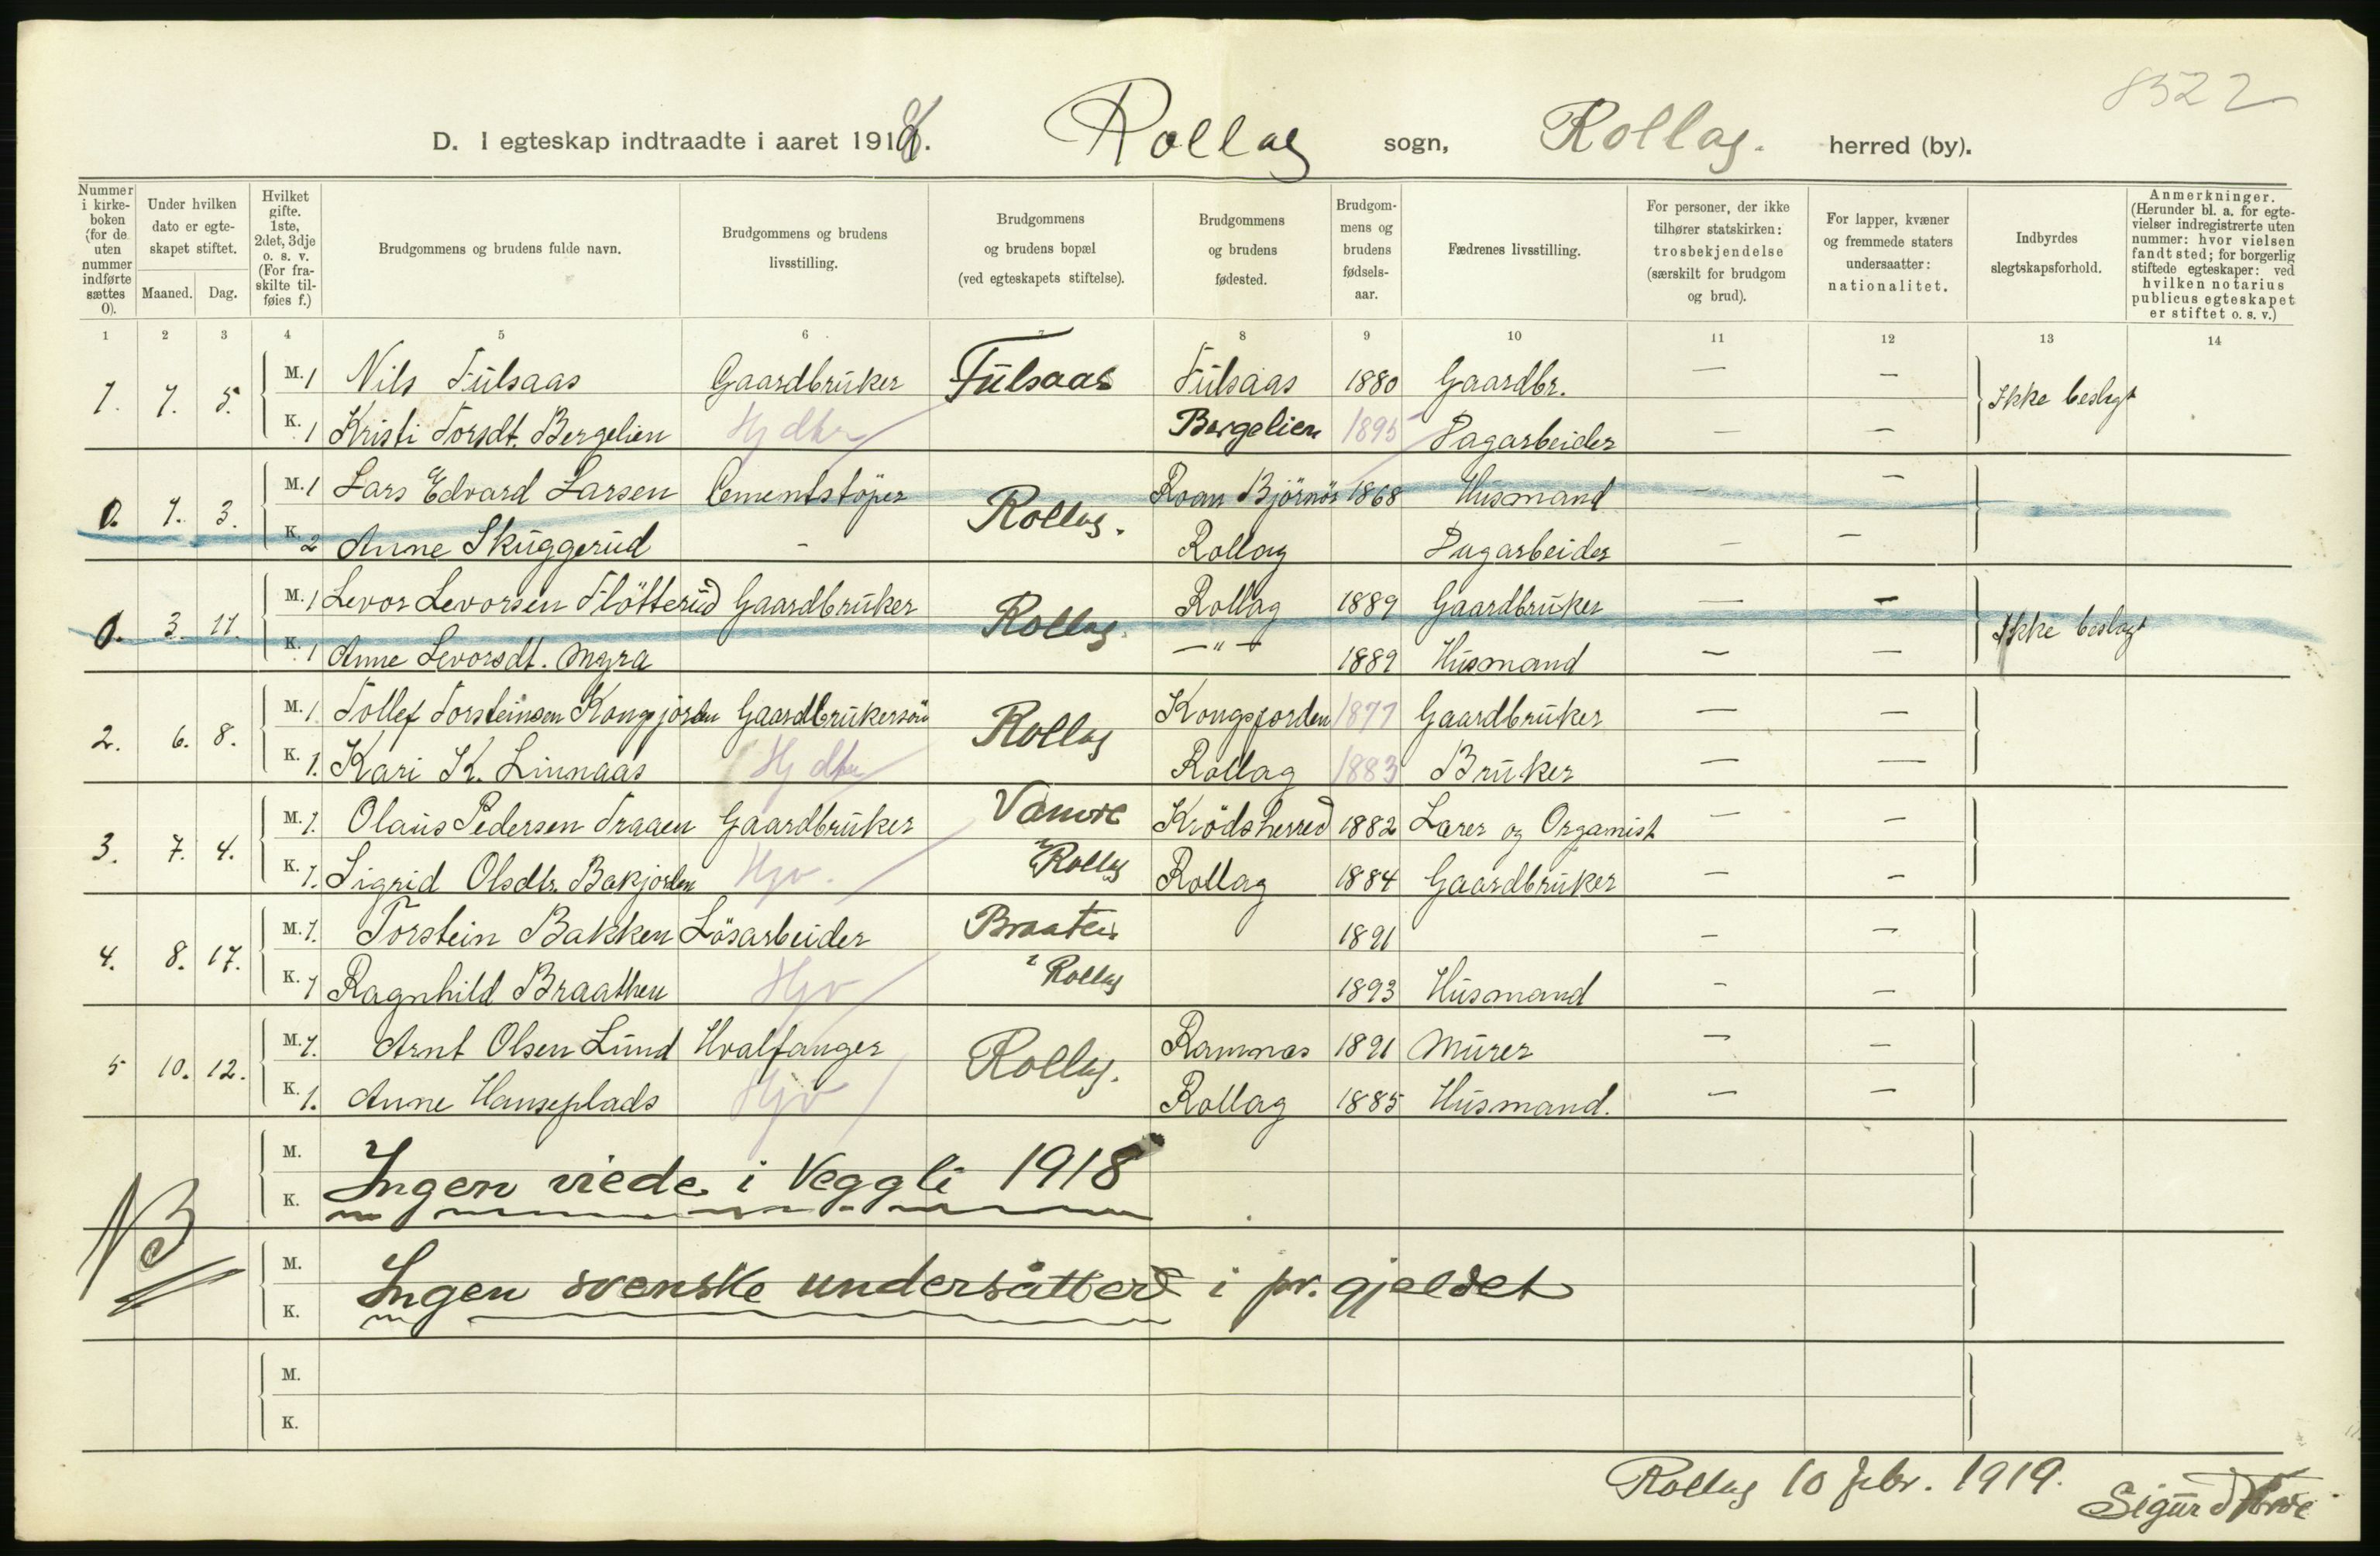 8522
D. I egteskap indtraadte i aaret 1918. Rollag sogn, Rollag. herred (by).
Nummer i kirke-boken (for de uten nummer indførte sættes 0).
Under hvilken dato er egte-skapet stiftet.
Maaned. Dag.
Hvilket gifte. 1ste, 2det, 3dje o. s. v. (For fra-skilte til-føies f.)
Brudgommens og brudens fulde navn.
Brudgommens og brudens livsstilling.
Brudgommens og brudens bopæl (ved egteskapets stiftelse).
Brudgommens og brudens fødested.
Brudgom-mens og brudens fødsels-aar.
Fædrenes livsstilling.
For personer, der ikke tilhører statskirken: trosbekjendelse (særskilt for brudgom og brud).
For lapper, kvæner og fremmede staters undersaatter: nationalitet.
Indbyrdes slegtskapsforhold.
Anmerkninger. (Herunder bl. a. for egte-vielser indregistrerte uten nummer: hvor vielsen fandt sted; for borgerlig stiftede egteskaper: ved hvilken notarius publicus egteskapet er stiftet o. s. v.)
1 2 3 4 5 6 7 8 9 10 11 12 13 14
1. 1. 5. M. 1 Nils Fulsaas Gaardbruker Fulsaas Fulsaas 1880 Gaardbr. — — Ikke beslegt
K. 1 Kristi Torsdt. Bergelien Hj dtr Bergelien 1895 Dagarbeider — —
0. 1. 3. M. 1 Lars Edvard Larsen Cementstöper Rollag. Roan Björnör 1868 Husmand — —
K. 2 Anne Skuggerud - Rollag Dagarbeider — —
0. 3. 11. M. 1 Levor Levorsen Flötterud Gaardbruker Rollag. Rollag 1889 Gaardbruker — — Ikke beslegt
K. 1 Anne Levorsdt. Myra —"— 1889 Husmand — —
2. 6. 8. M. 1 Tollef Torsteinsen Kongsjorden Gaardbrukersön Rollag Kongsjorden 1877 Gaardbruker — —
K. 1. Kari K. Linnaas Hj dtr Rollag 1883 Bruker — —
3. 7. 4. M. 1. Olaus Pedersen Traaen Gaardbruker Krödsherred 1882 Lærer og Organist — —
K. 1. Sigrid Olsdtr. Bakjorden Hjv. i Rollag Rollag 1884 Gaardbruker — —
4. 8. 17. M. 1. Torstein Bakken Lösarbeider Braaten 1891 — —
K. 1 Ragnhild Braathen Hjv i Rollag 1893 Husmand — —
5 10. 12. M. 1. Arnt Olsen Lund Hvalfanger Rollag. Ramnæs 1891 Murer — —
K. 1. Anne Hanseplads Hjv Rollag 1885 Husmand. — —
M. K. Ingen viede i Veggli 1918
NB M. K. Ingen svenske undersåtter i pr. gjeldet
M.
K.
Rollag 10 febr. 1919.
Sigurd